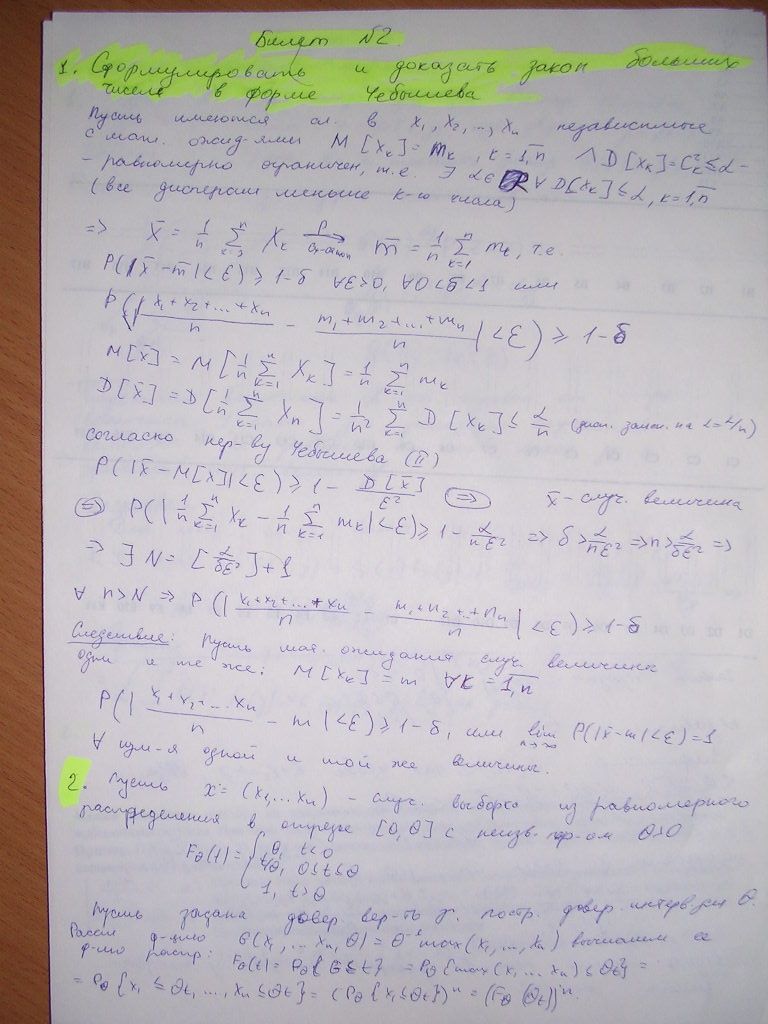 Билет №2
1. Сформулировать и доказать закон больших
чисел в форме Чебышева
Пусть имеются сл. в x₁, x₂, ..., xₙ независимые
с мат. ожид-ями M[xₖ] = mₖ, k = 1,n ∧ D[xₖ] = Cₖ² ≤ α -
- равномерно ограничен, т.е. ∃ α ∈ ∀ D[xₖ] ≤ α, k = 1,n
(все дисперсии меньше к-ю числа)
=> X̄ = 1/n ∑ Xₖ →ᴾ m̄ = 1/n ∑ₖ₌₁ⁿ mₖ, т.е.
P(|X̄ - m̄| < ε) ≥ 1-δ ∀ε>0, ∀0<δ<1 или
P(| (x₁+x₂+...+xₙ)/n - (m₁+m₂+...+mₙ)/n | < ε) ≥ 1-δ
M[x̄] = M[1/n ∑ₖ₌₁ⁿ Xₖ] = 1/n ∑ₖ₌₁ⁿ mₖ
D[x̄] = D[1/n ∑ₖ₌₁ⁿ Xₙ] = 1/n² ∑ₖ₌₁ⁿ D[xₖ] ≤ α/n (дисп. замен. на α/n)
согласно нер-ву Чебышева (II)
P(|x̄ - M[x̄]| < ε) ≥ 1 - D[x̄]/ε² <=> x̄ - случ. величина
<=> P(|1/n ∑ₖ₌₁ⁿ xₖ - 1/n ∑ₖ₌₁ⁿ mₖ| < ε) ≥ 1 - α/nε² => δ > α/nε² => n > α/δε² =>
=> ∃ N = [α/δε²] + 1
∀ n > N => P(| (x₁+x₂+...+xₙ)/n - (m₁+m₂+...+mₙ)/n | < ε) ≥ 1-δ
Следствие: Пусть мат. ожидания случ. величины
одни и те же: M[xₖ] = m ∀k = 1,n
P(| (x₁+x₂+...xₙ)/n - m | < ε) ≥ 1-δ, или lim n→∞ P(|x̄-m| < ε) = 1
∀ изм-я одной и той же величины.
2. Пусть x = (x₁,...xₙ) - случ. выборка из равномерного
распределения в отрезке [0, θ] с неизв. пар-ом θ>0
F_θ(t) = { 0, t<0
t/θ, 0≤t≤θ
1, t>θ
Пусть задана довер вер-ть γ. постр. довер. интервал для θ.
Рассм ф-цию G(x₁,...xₙ, θ) = θ⁻¹max(x₁,...,xₙ) вычислим ее
ф-цию распр: F_θ(t) = P_θ{G≤t} = P_θ{max(x₁,...xₙ) ≤ θt} =
= P_θ{x₁ ≤ θt, ..., xₙ ≤ θt} = (P_θ{x₁≤θt})ⁿ = (F_θ(θt))ⁿ.